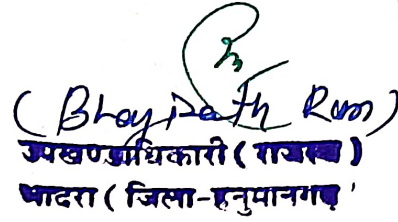 (Bhagirath Ram)
उपखण्डाधिकारी (राजस्व)
भादरा (जिला-हनुमानगढ़